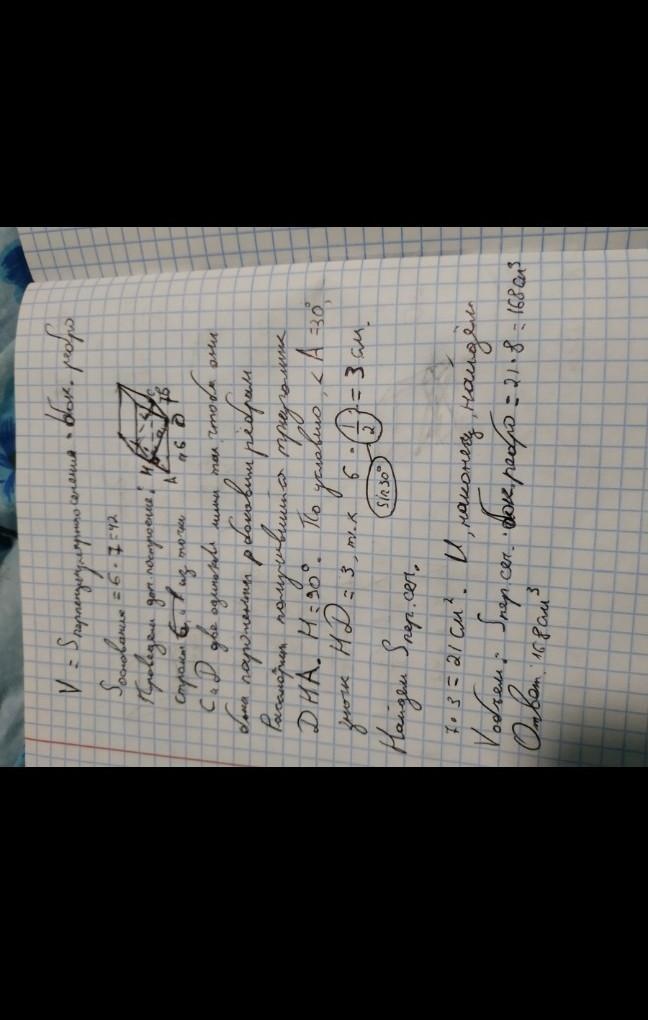 V = S перпендикулярного сечения · бок. ребро
S основания = 6 · 7 = 42
Проведем доп. построение:
H
A 6 D
строим из точки
C и D две одинаковые линии так, чтобы они
были перпенд. к боковым ребрам
Рассмотрим получившийся треугольник
DHA. H = 90°. По условию, < A = 30°,
значит HD = 3, т.к 6 · 1/2 = 3 см.
sin 30°
Найдём S пер. сеч.
7 · 3 = 21 см². И, наконец, найдём
V объем: S пер. сеч. · бок. ребро = 21 · 8 = 168 см³
Ответ: 168 см³